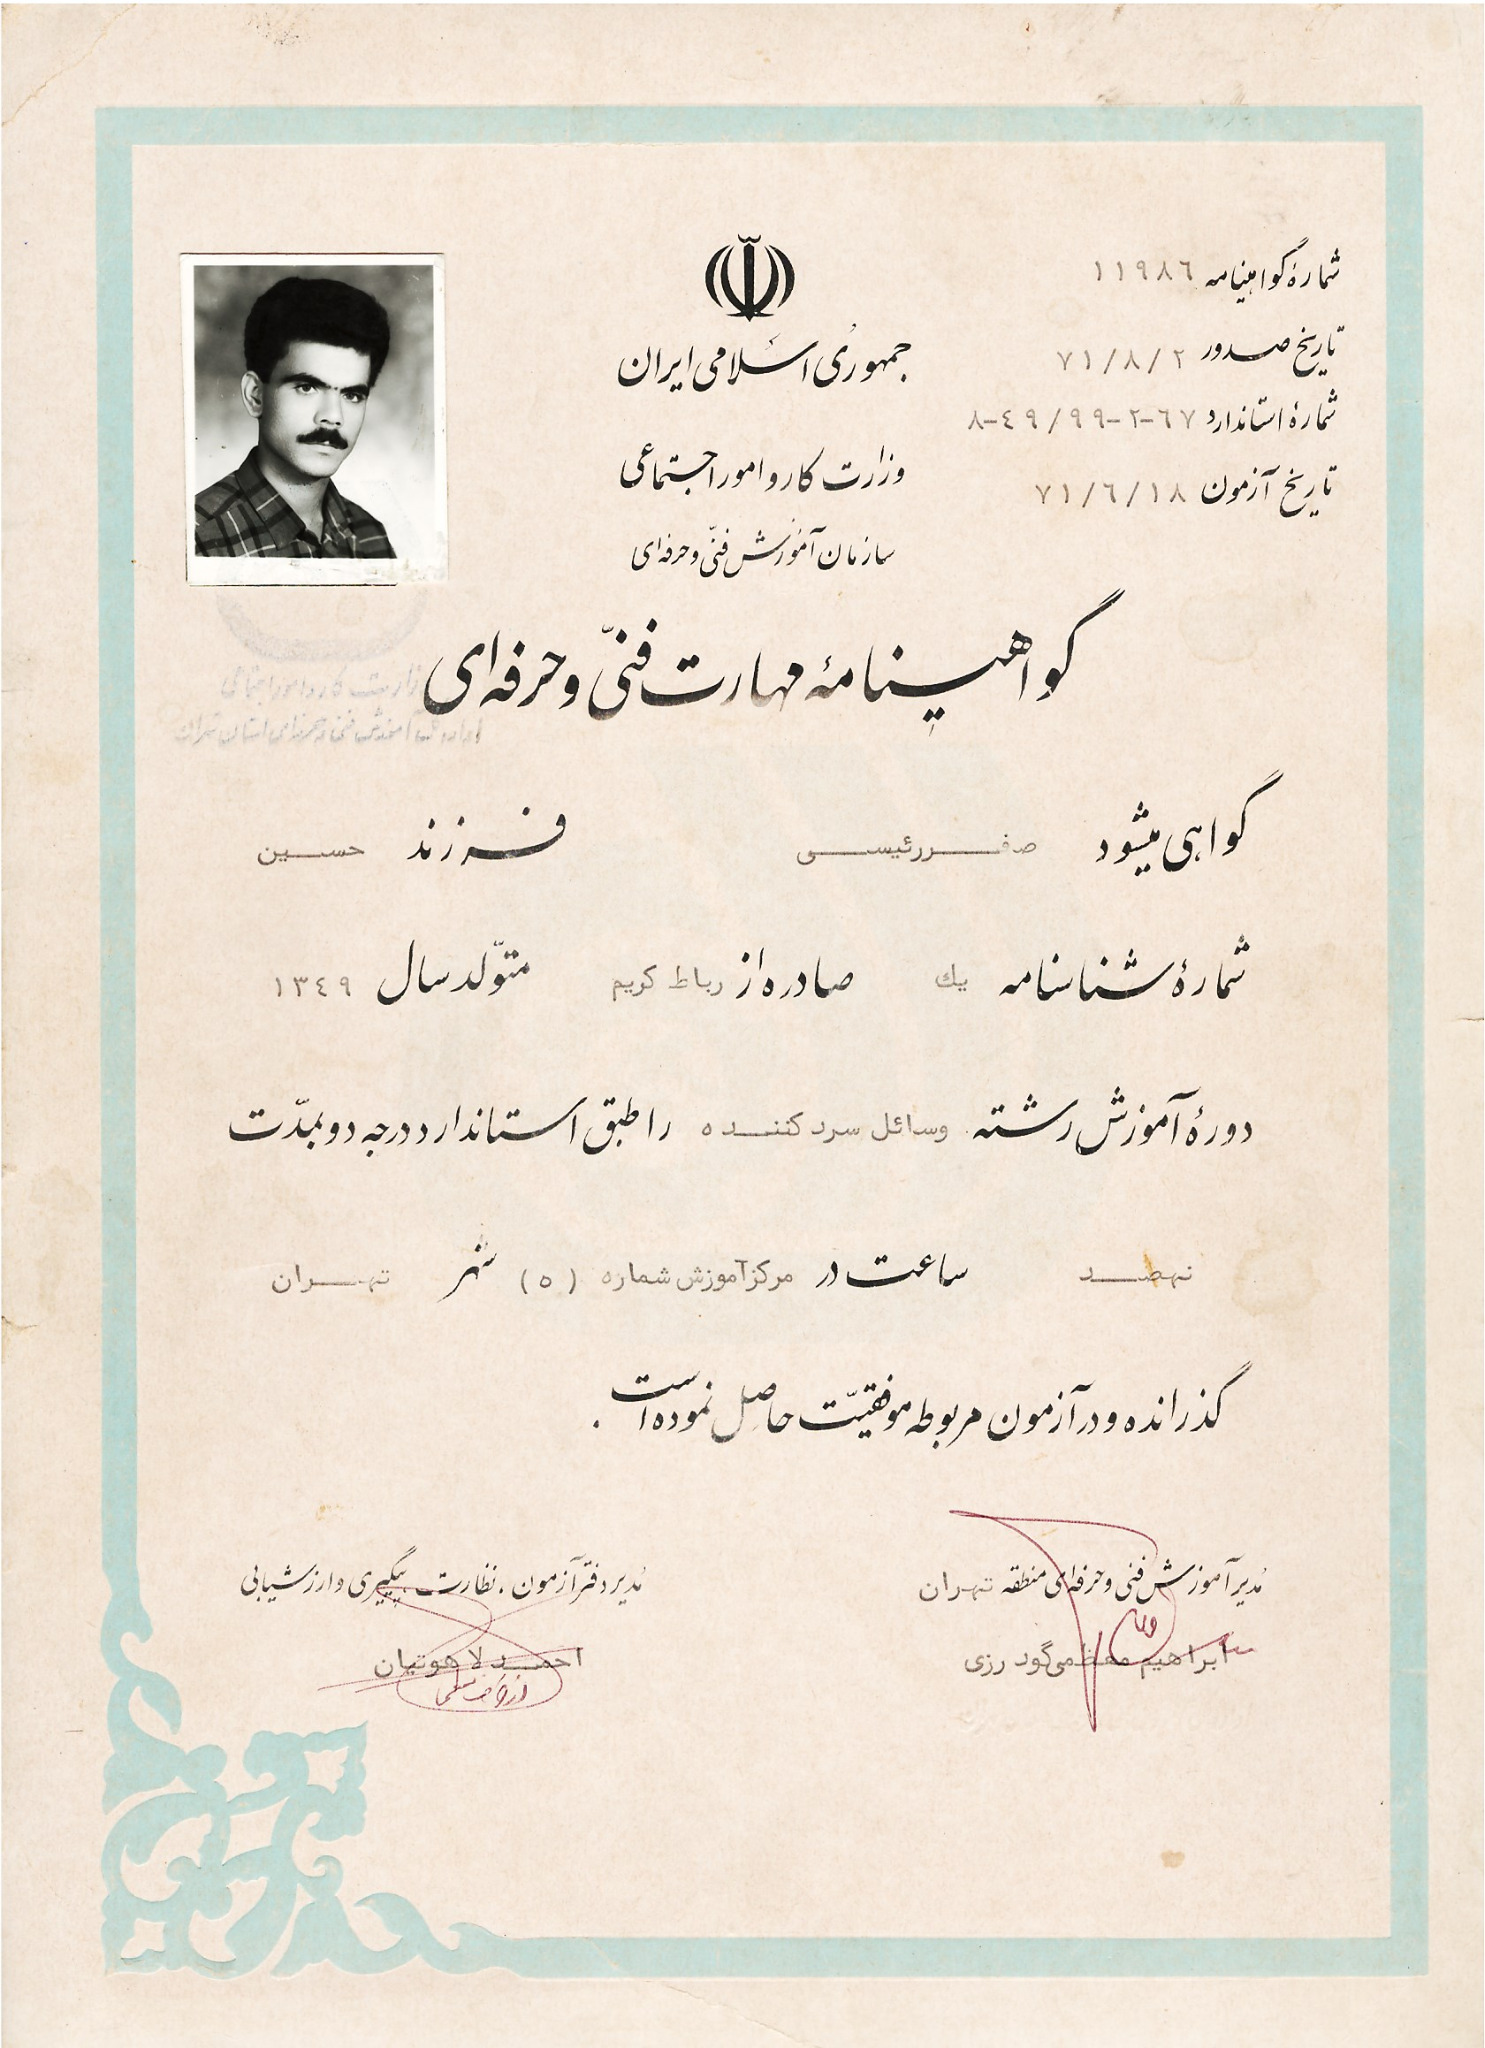 شمارهٔ گواهینامه ١١٩٨٦
تاریخ صدور ٧١/٨/٢
شمارهٔ استاندارد ٨-٤٩/٩٩-٢-٦٧
تاریخ آزمون ٧١/٦/١٨
جمهوری اسلامی ایران
وزارت کار و امور اجتماعی
سازمان آموزش فنّی و حرفه‌ای
گواهینامهٔ مهارت فنّی و حرفه‌ای
وزارت کار و امور اجتماعی
اداره کل آموزش فنی و حرفه‌ای استان تهران
گواهی میشود صفررئیسی فرزند حسین
شمارهٔ شناسنامه یك صادره از رباط کریم متولّد سال ١٣٤٩
دورهٔ آموزش رشته وسائل سرد کننده را طبق استاندارد درجه دو بمدّت
نهصد ساعت در مرکز آموزش شماره (٥) شهر تهران
گذرانده و در آزمون مربوطه موفقیّت حاصل نموده است .
مدیر آموزش فنی و حرفه‌ای منطقه تهران
ابراهیم معظمی‌گودرزی
مدیر دفتر آزمون ، نظارت ، پیگیری و ارزشیابی
احمد لاهوتیان